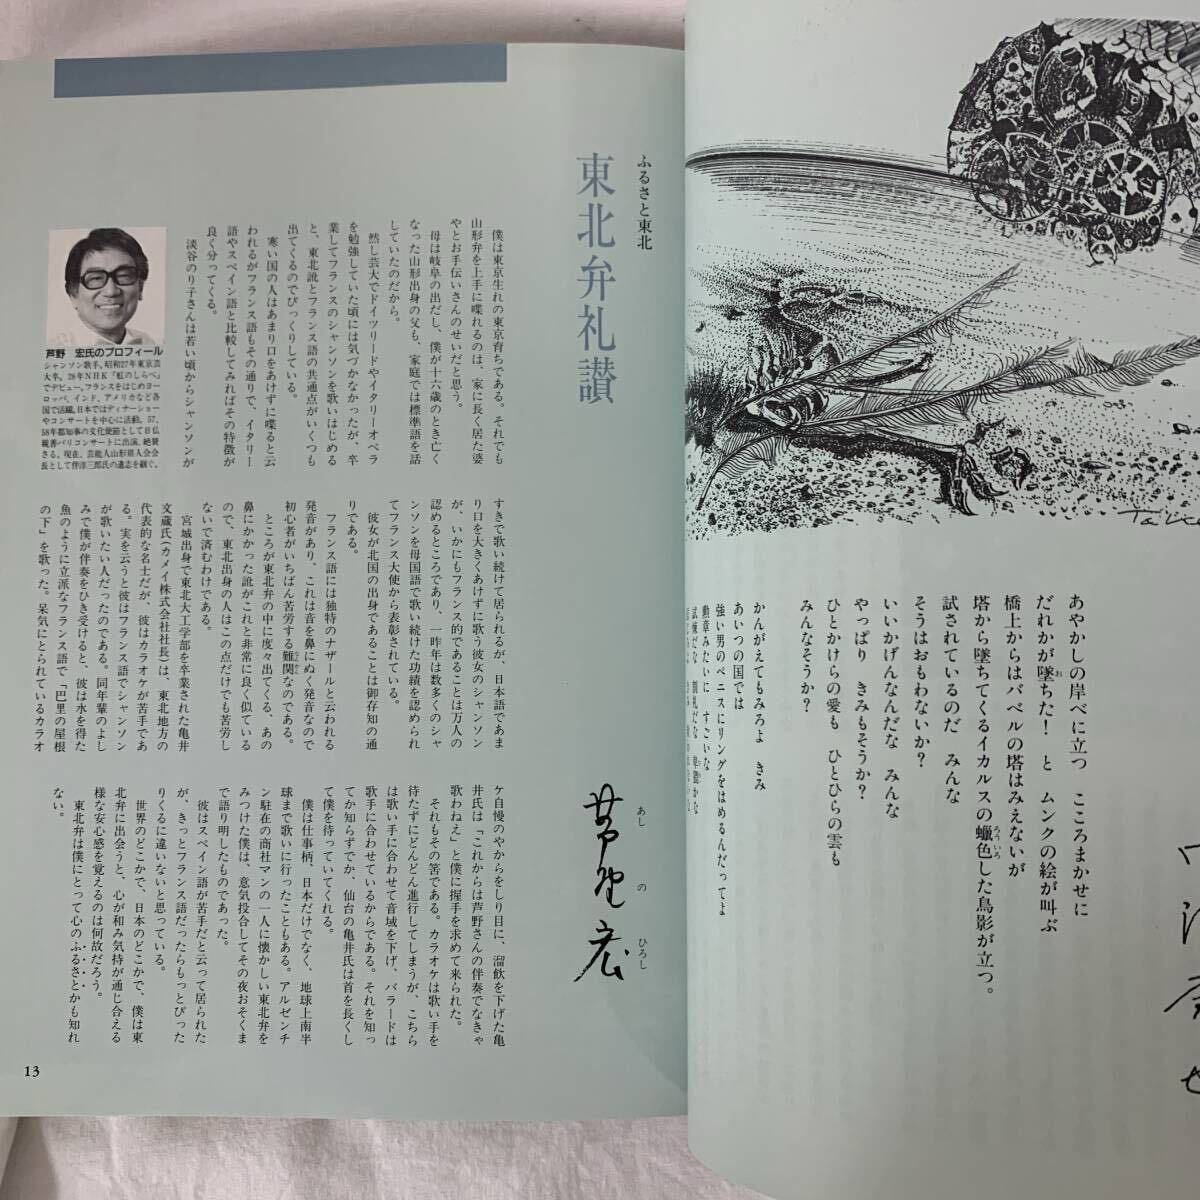 あやかしの岸べに立つ　こころまかせに
だれかが墜ちた！　と　ムンクの絵が叫ぶ
お
橋上からはバベルの塔はみえないが
塔から墜ちてくるイカルスの蠟色した鳥影が立つ。
ろういろ
試されているのだ　みんな
そうはおもわないか？
いいかげんなんだな　みんな
やっぱり　きみもそうか？
ひとかけらの愛も　ひとひらの雲も
みんなそうか？
かんがえてもみろよ　きみ
あいつの国では
強い男のペニスにリングをはめるんだってよ
勲章みたいに　すごいな
ふるさと東北
東北弁礼讃
あしのひろし
芦野宏
僕は東京生れの東京育ちである。それでも
山形弁を上手に喋れるのは、家に長く居た婆
やとお手伝いさんのせいだと思う。
母は岐阜の出だし、僕が十六歳のとき亡く
なった山形出身の父も、家庭では標準語を話
していたのだから。
然し芸大でドイツリードやイタリーオペラ
を勉強していた頃には気づかなかったが、卒
業してフランスのシャンソンを歌いはじめる
と、東北訛とフランス語の共通点がいくつも
出てくるのでびっくりしている。
寒い国の人はあまり口をあけずに喋ると云
われるがフランス語もその通りで、イタリー
語やスペイン語と比較してみればその特徴が
良く分ってくる。
淡谷のり子さんは若い頃からシャンソンが
すきで歌い続けて居られるが、日本語であま
り口を大きくあけずに歌う彼女のシャンソン
が、いかにもフランス的であることは万人の
認めるところであり、一昨年は数多くのシャ
ンソンを母国語で歌い続けた功績を認められ
てフランス大使から表彰されている。
彼女が北国の出身であることは御存知の通
りである。
フランス語には独特のナザールと云われる
発音があり、これは音を鼻にぬく発音なので
初心者がいちばん苦労する難関なのである。
ところが東北弁の中に度々出てくる、あの
鼻にかかった訛がこれと非常に良く似ている
ので、東北出身の人はこの点だけでも苦労し
ないで済むわけである。
宮城出身で東北大工学部を卒業された亀井
文蔵氏（カメイ株式会社社長）は、東北地方の
代表的な名士だが、彼はカラオケが苦手であ
る。実を云うと彼はフランス語でシャンソン
が歌いたい人だったのである。同年輩のよし
みで僕が伴奏をひき受けると、彼は水を得た
魚のように立派なフランス語で「巴里の屋根
の下」を歌った。呆気にとられているカラオ
ケ自慢のやからをしり目に、溜飲を下げた亀
井氏は「これからは芦野さんの伴奏でなきゃ
歌わねえ」と僕に握手を求めて来られた。
それもその筈である。カラオケは歌い手を
待たずにどんどん進行してしまうが、こちら
は歌い手に合わせて音域を下げ、バラードは
歌手に合わせているからである。それを知っ
てか知らずでか、仙台の亀井氏は首を長くし
て僕を待っていてくれる。
僕は仕事柄、日本だけでなく、地球上南半
球まで歌いに行ったこともある。アルゼンチ
ン駐在の商社マンの一人に懐かしい東北弁を
みつけた僕は、意気投合してその夜おそくま
で語り明したものであった。
彼はスペイン語が苦手だと云って居られた
が、きっとフランス語だったらもっとぴった
りくるに違いないと思っている。
世界のどこかで、日本のどこかで、僕は東
北弁に出会うと、心が和み気持が通じ合える
様な安心感を覚えるのは何故だろう。
東北弁は僕にとって心のふるさとかも知れ
ない。
芦野　宏氏のプロフィール
シャンソン歌手。昭和27年東京芸
大卒。28年NHK「虹のしらべ」
でデビュー。フランスをはじめヨー
ロッパ、インド、アメリカなど各
国で活躍。日本ではディナーショー
やコンサートを中心に活動。57、
58年都知事の文化使節として日仏
親善パリコンサートに出演、絶賛
さる。現在、芸能人山形県人会会
長として伴淳三郎氏の遺志を継ぐ。
13